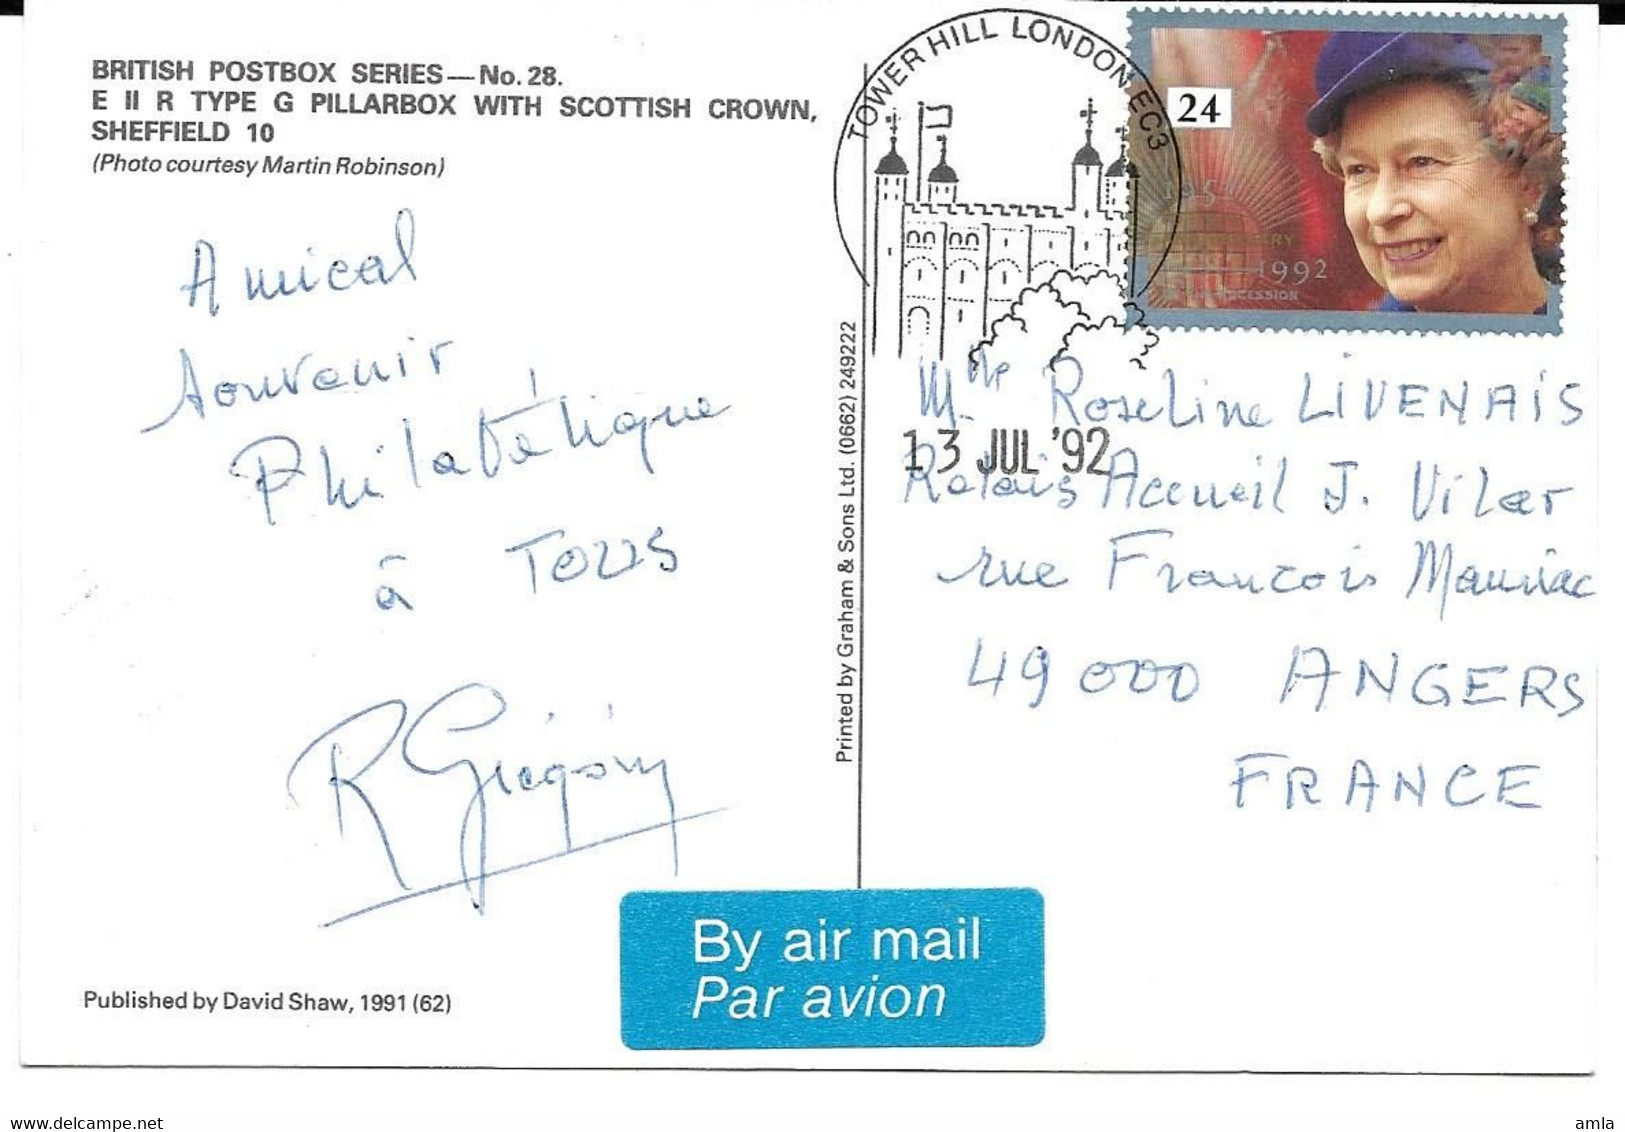 BRITISH POSTBOX SERIES — No. 28.
E II R TYPE G PILLARBOX WITH SCOTTISH CROWN,
SHEFFIELD 10
(Photo courtesy Martin Robinson)
Amical
souvenir
Philatélique
à TOUS
Published by David Shaw, 1991 (62)
Printed by Graham & Sons Ltd. (0662) 249222
TOWER HILL LONDON EC3
24
1992
13 JUL '92
Mlle Roseline LIVENAIS
Relais Accueil J. Vilar
rue Francois Mauriac
49 000 ANGERS
FRANCE
By air mail
Par avion
delcampe.net
amla